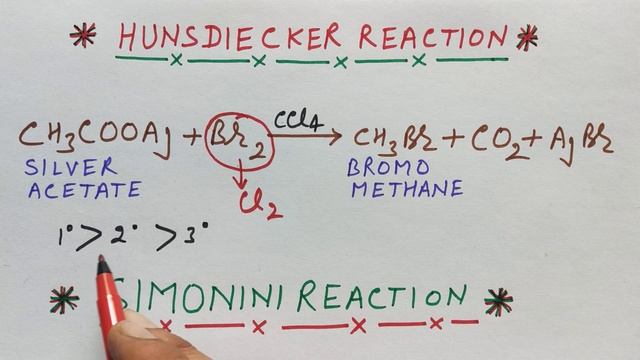 * HUNSDIECKER REACTION *
CH₃COOAg + Br₂ CCl₄ → CH₃Br + CO₂ + AgBr
SILVER BROMO
ACETATE METHANE
↓
Cl₂
1° > 2° > 3°
* SIMONINI REACTION *